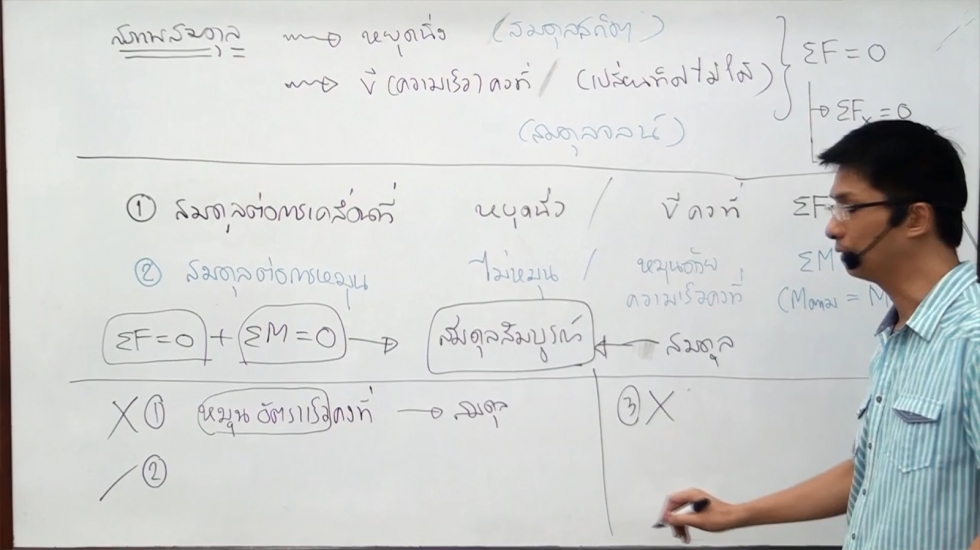 สภาพสมดุล → หยุดนิ่ง (สมดุลสถิต) ΣF = 0
→ V (ความเร็ว) คงที่ / (เปลี่ยนทิศไม่ได้) → ΣFx = 0
(สมดุลจลน์)
① สมดุลต่อการเคลื่อนที่ หยุดนิ่ง / V คงที่ ΣF
② สมดุลต่อการหมุน ไม่หมุน / หมุนด้วย ΣM
ความเร็วคงที่ (Mตาม = M
ΣF = 0 + ΣM = 0 → สมดุลสัมบูรณ์ ← สมดุล
X ① หมุน อัตราเร็วคงที่ → สมดุล
/ ②
③ X